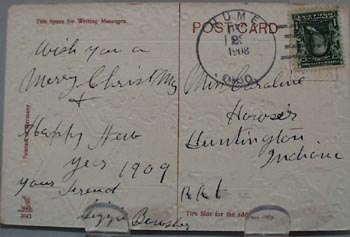 This Space for Writing Messages.
Wish you a
Merry Christmas
+
Happy New
Year 1909
your friend
Lizzie
Printed in Germany
2013
POSTCARD
HUME
1908
OHIO.
Miss Caroline
Howser
Huntington
Indiana
RR
This Side for the address only.